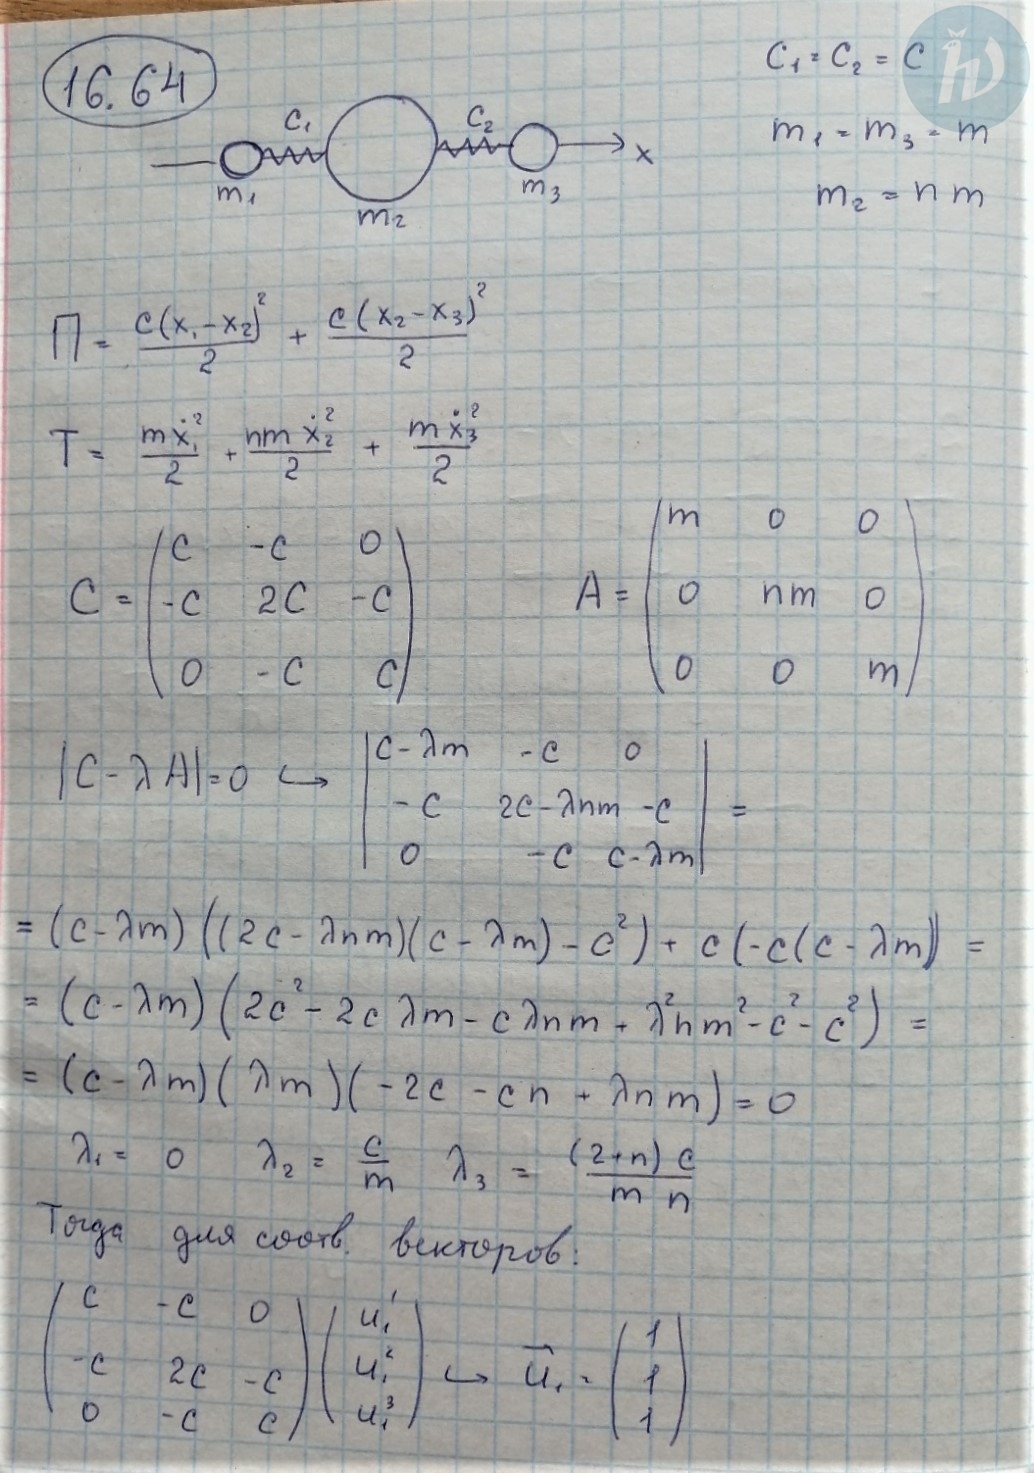 16.64
C₁ = C₂ = C
m₁ = m₃ = m
m₂ = n m
C₁ C₂ x
m₁ m₂ m₃
П = c(x₁-x₂)²/2 + c(x₂-x₃)²/2
T = mẋ₁²/2 + nmẋ₂²/2 + mẋ₃²/2
C = (c -c 0
-c 2c -c
0 -c c)
A = (m 0 0
0 nm 0
0 0 m)
|C - λA| = 0 ↪ |c-λm -c 0
-c 2c-λnm -c
0 -c c-λm| =
= (c-λm)((2c-λnm)(c-λm)-c²) + c(-c(c-λm)) =
= (c-λm)(2c²-2cλm-cλnm+λ²nm²-c²-c²) =
= (c-λm)(λm)(-2c-cn+λnm) = 0
λ₁ = 0 λ₂ = c/m λ₃ = (2+n)c/mn
Тогда для соотв. векторов:
(c -c 0
-c 2c -c
0 -c c)
(u₁¹
u₁²
u₁³)
↪ u⃗₁ = (1
1
1)